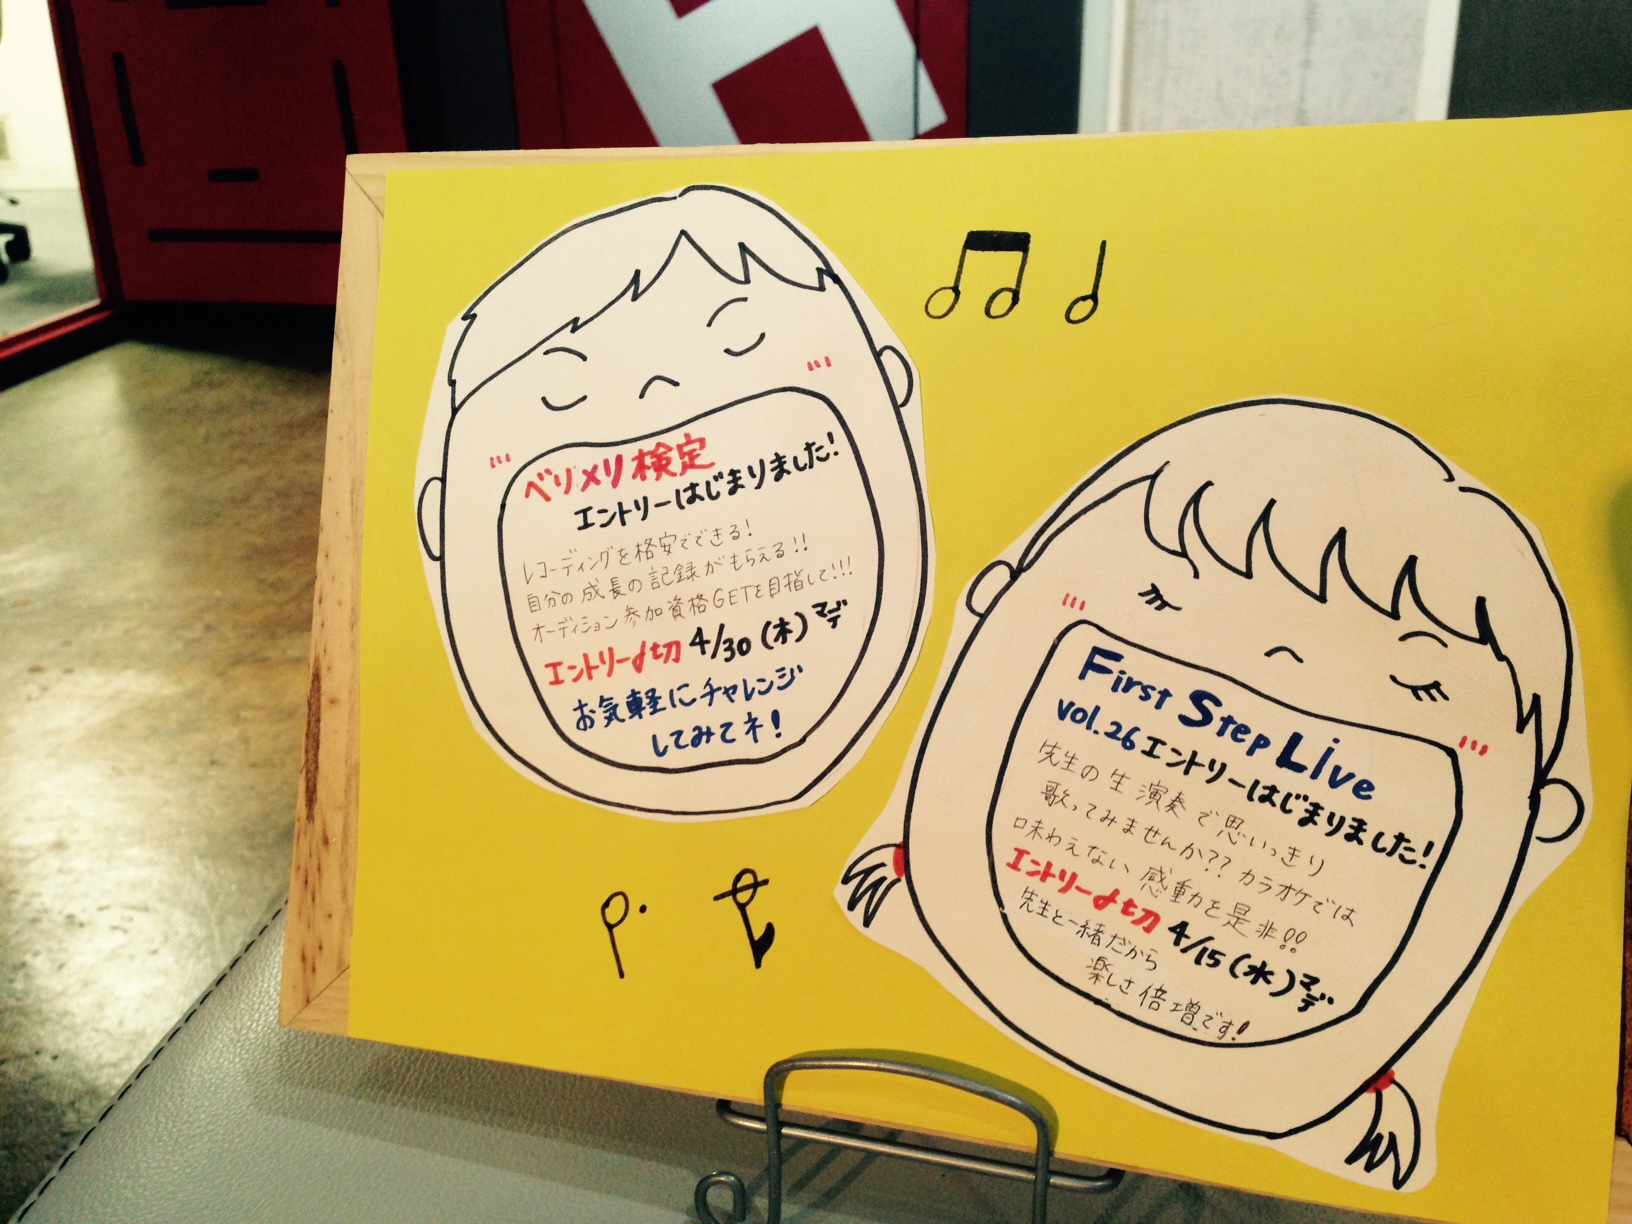 ベリメリ検定
エントリーはじまりました!
レコーディングを格安でできる!
自分の成長の記録がもらえる!!
オーディション参加資格GETを目指して!!!
エントリー〆切 4/30(木)マデ
お気軽にチャレンジ
してみてネ!
First Step Live
vol.26 エントリーはじまりました!
先生の生演奏で思いっきり
歌ってみませんか?? カラオケでは
味わえない感動を是非!!
エントリー〆切 4/15(水)マデ
先生と一緒だから
楽しさ倍増です!